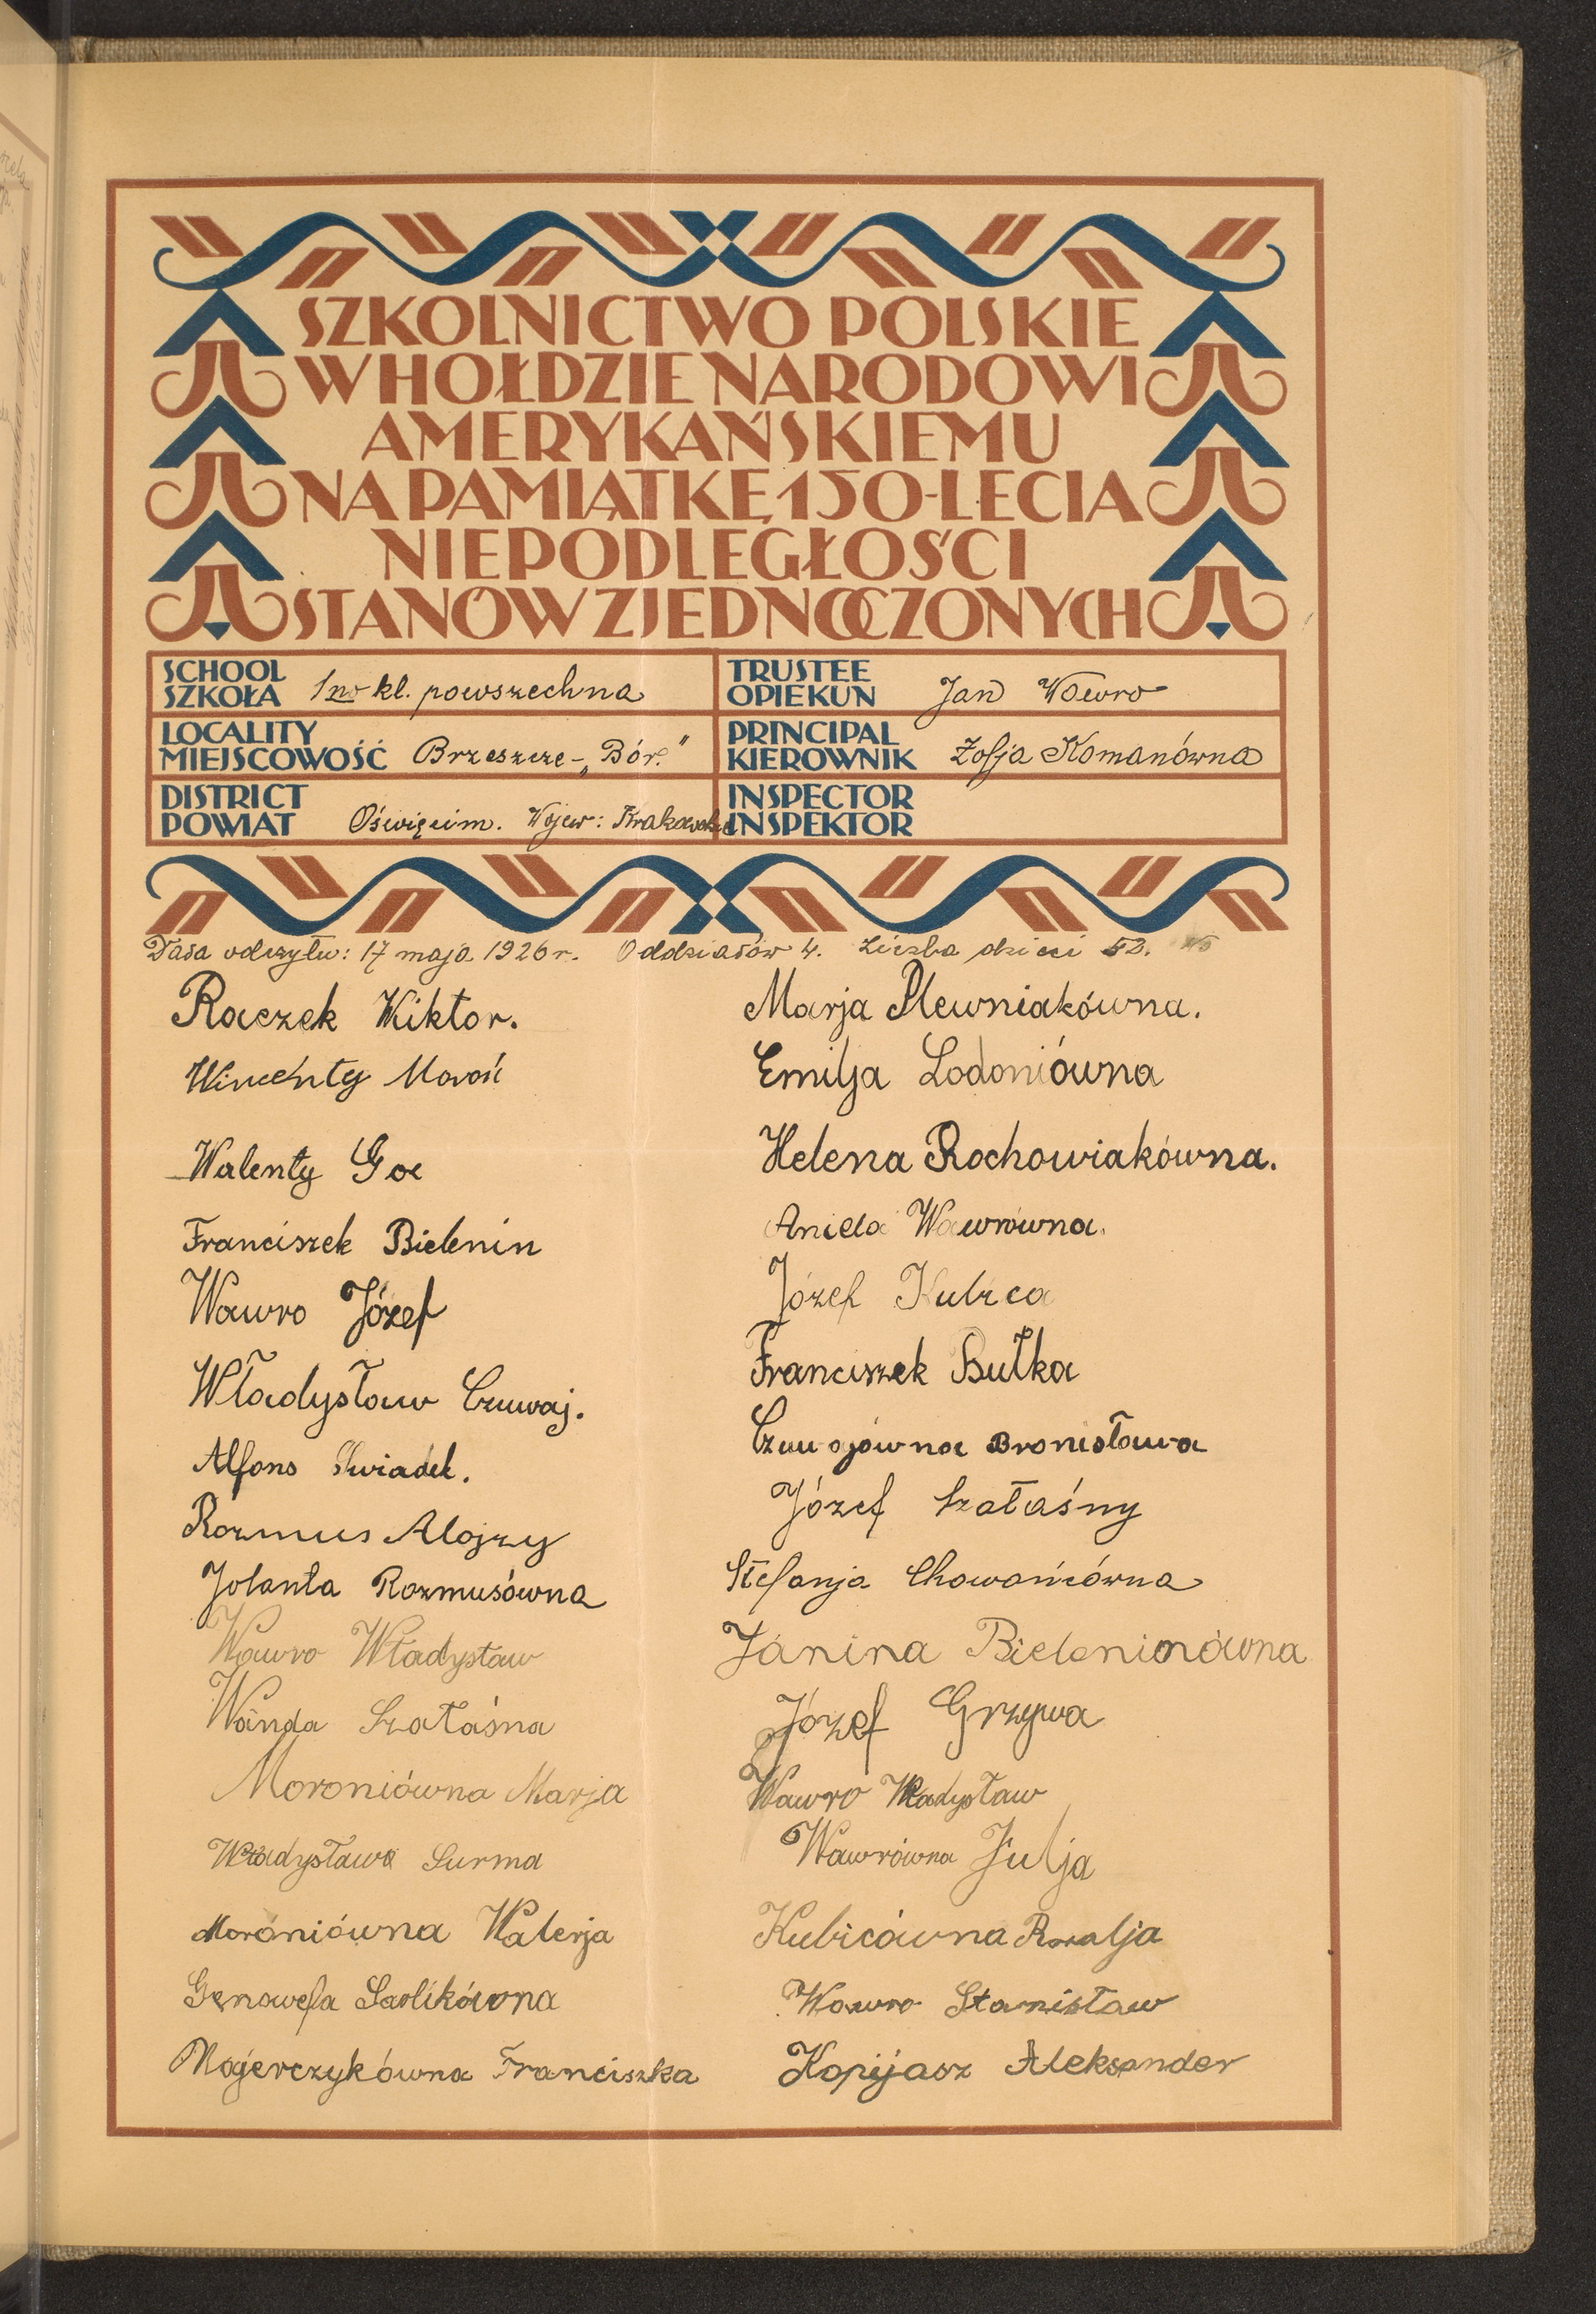 SZKOLNICTWO POLSKIE
W HOŁDZIE NARODOWI
AMERYKAŃSKIEMU
NA PAMIĄTKĘ 150-LECIA
NIEPODLEGŁOŚCI
STANÓW ZJEDNOCZONYCH
SCHOOL
SZKOŁA 1no kl. powszechna
TRUSTEE
OPIEKUN Jan Wawro
LOCALITY
MIEJSCOWOŚĆ Brzeszcze - „Bór."
PRINCIPAL
KIEROWNIK Zofja Komanówna
DISTRICT
POWIAT Oświęcim. Wojew: Krakowskie
INSPECTOR
INSPEKTOR
Data odczytu: 17 maja 1926 r. Oddziałów 4. Liczba dzieci 52.
Raczek Wiktor.
Wincenty Moroń
Walenty Goc
Franciszek Bielenin
Wawro Józef
Władysław Czuwaj.
Alfons Świadek.
Rozmus Alojzy
Jolanta Rozmusówna
Wawro Władysław
Wanda Szałaśna
Moroniówna Marja
Władysława Surma
Moroniówna Walerja
Genowefa Sarlikówna
Majerczykówna Franciszka
Marja Plewniakówna.
Emilja Lodoniówna
Helena Rochowiakówna.
Aniela Wawrówna.
Józef Kubica
Franciszek Bułka
Czuwajówna Bronisława
Józef Szałaśny
Stefanja Chowańcówna
Janina Bieleninówna
Józef Grzywa
Wawro Władysław
Wawrówna Julja
Kubicówna Rozalja
Wawro Stanisław
Kopijasz Aleksander